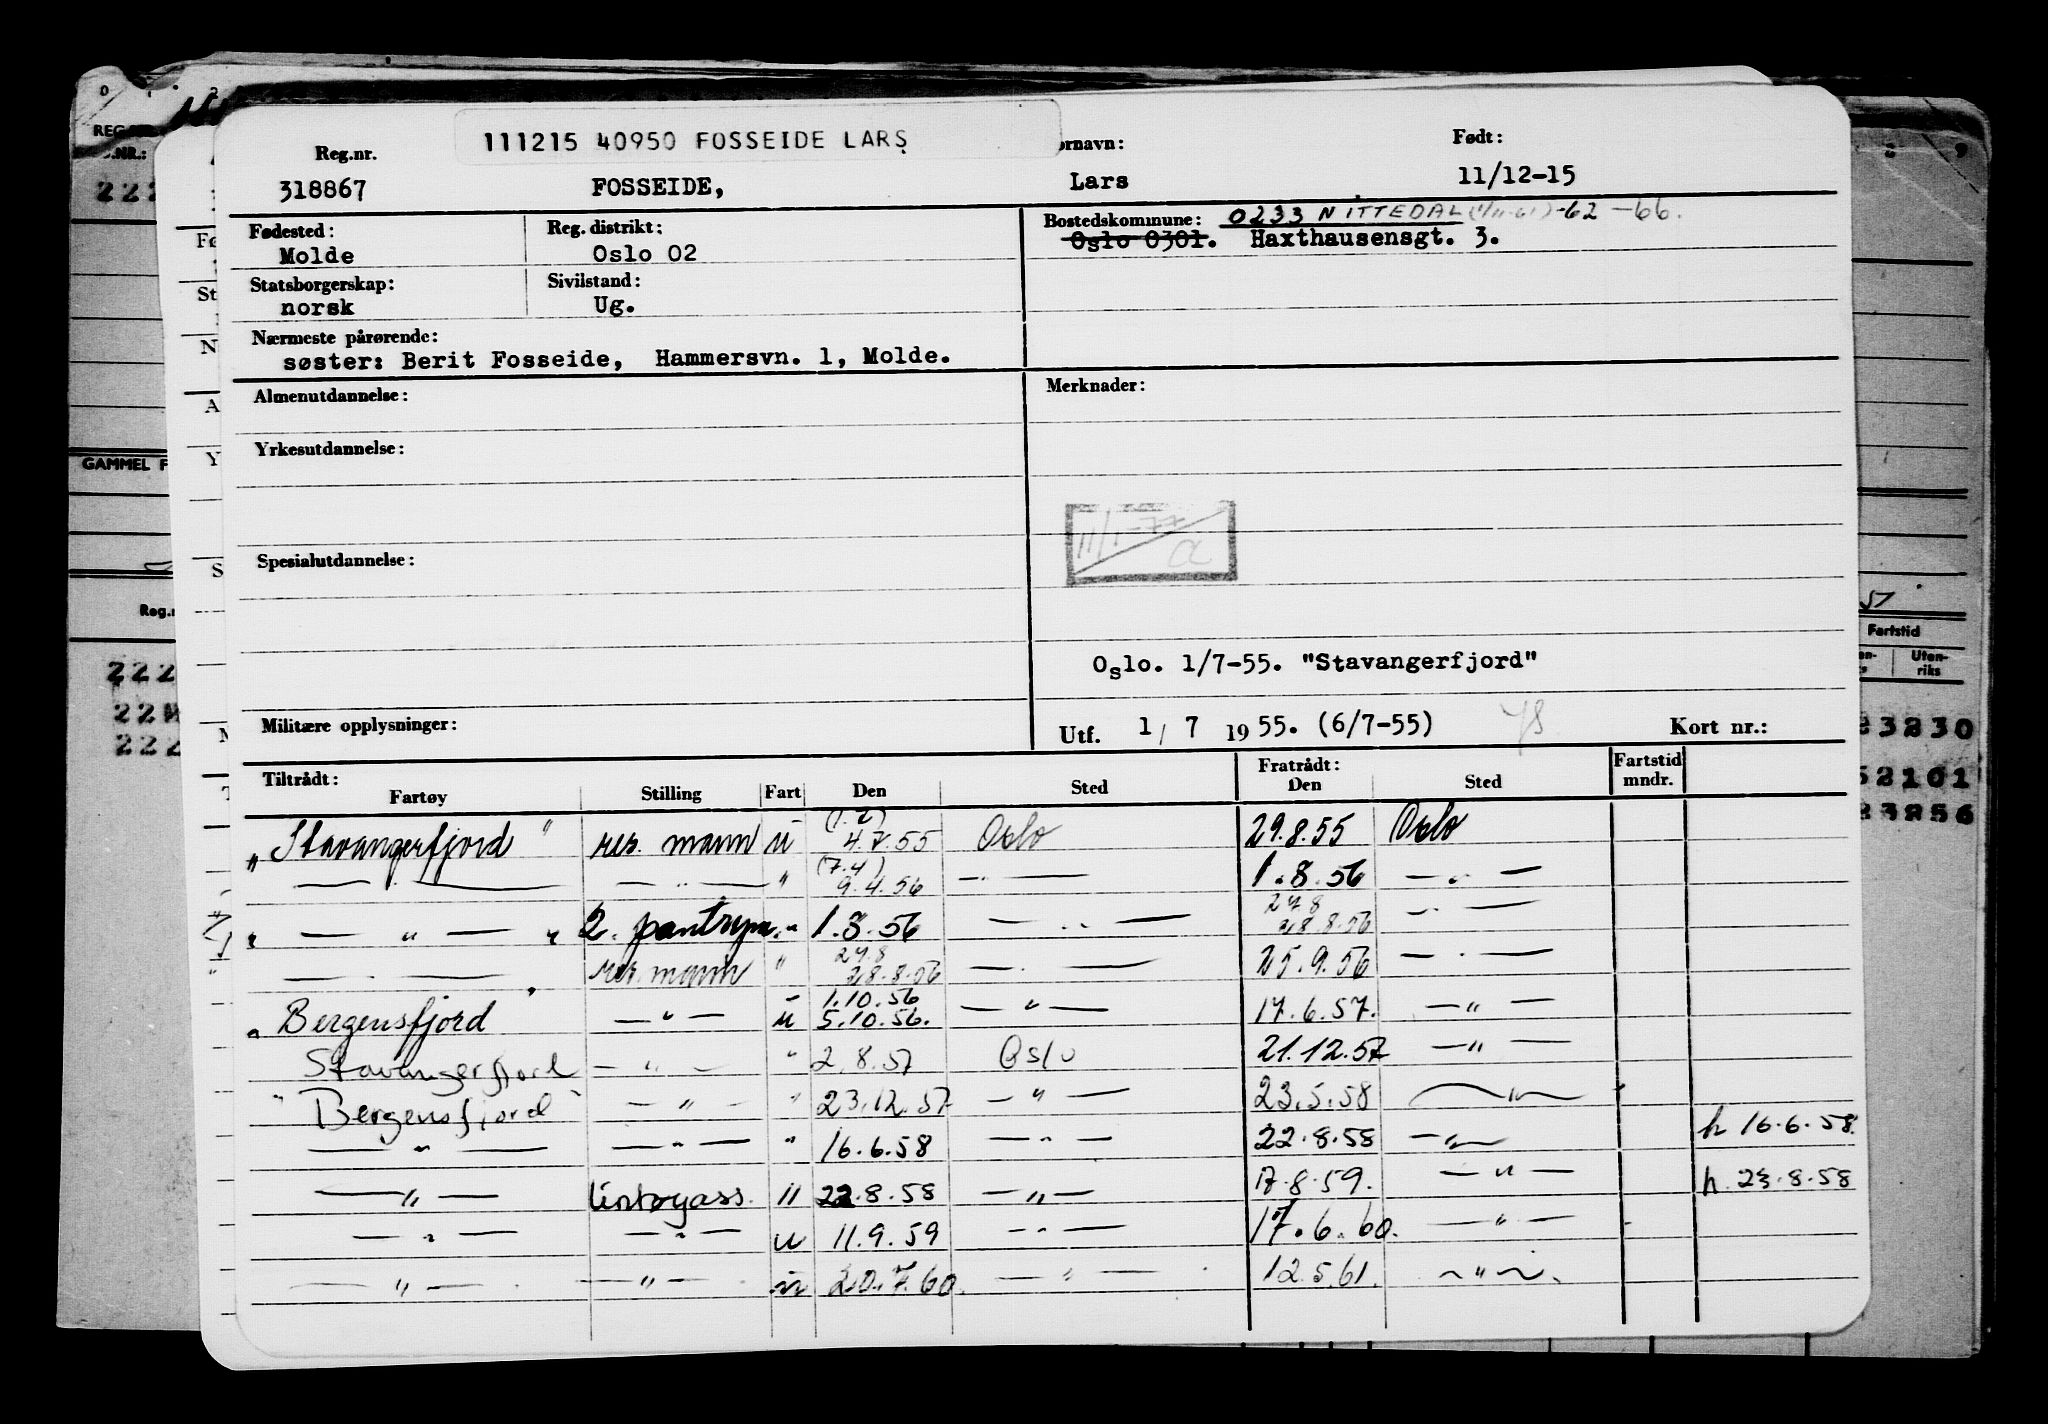 111215 40950 FOSSEIDE LARS
Reg.nr. ornavn: Født:
318867 FOSSEIDE, Lars 11/12-15
Fødested: Reg. distrikt: Bostedskommune: 0233 NITTEDAL (1/11-61)-62 -66.
Molde Oslo 02 Oslo 0301. Haxthausensgt. 3.
Statsborgerskap: Sivilstand:
norsk Ug.
Nærmeste pårørende:
søster: Berit Fosseide, Hammersvn. 1, Molde.
Almenutdannelse: Merknader:
Yrkesutdannelse:
11/1-77
a
Spesialutdannelse:
Oslo. 1/7-55. "Stavangerfjord"
Militære opplysninger: Utf. 1/7 1955. (6/7-55) Kort nr.:
Tiltrådt: Fratrådt: Fartstid
Fartøy Stilling Fart Den Sted Den Sted mndr.
(1.7)
"Stavangerfjord" res. mann u 4.7.55 Oslo 29.8.55 Oslo
(7.4)
— " — — " — " 9.4.56 — " — 1.8.56 — " —
27.8
" — " — " 2. pantrym. " 1.8.56 — " — 28.8.56 — " —
27.8
— " — res. mann " 28.8.56 — " — 25.9.56 — " —
1.10.56
"Bergensfjord" — " — u 5.10.56. — " — 17.6.57. — " —
Stavangerfjord — " — " 2.8.57 Oslo 21.12.57 — " —
"Bergensfjord" — " — " 23.12.57 — " — 23.5.58 — " —
— " — — " — " 16.6.58 — " — 22.8.58 — " — h 16.6.58.
— " — lintøyass. " 22.8.58 — " — 17.8.59. — " — h. 23.8.58
— " — — " — u 11.9.59 — " — 17.6.60. — " —
— " — — " — u 20.7.60. — " — 12.5.61. — " —
REG.
.NR.:
222
GAMMEL F
Reg.n
222
22
222
Fartstid
Uten-
riks
23230
52101
23256